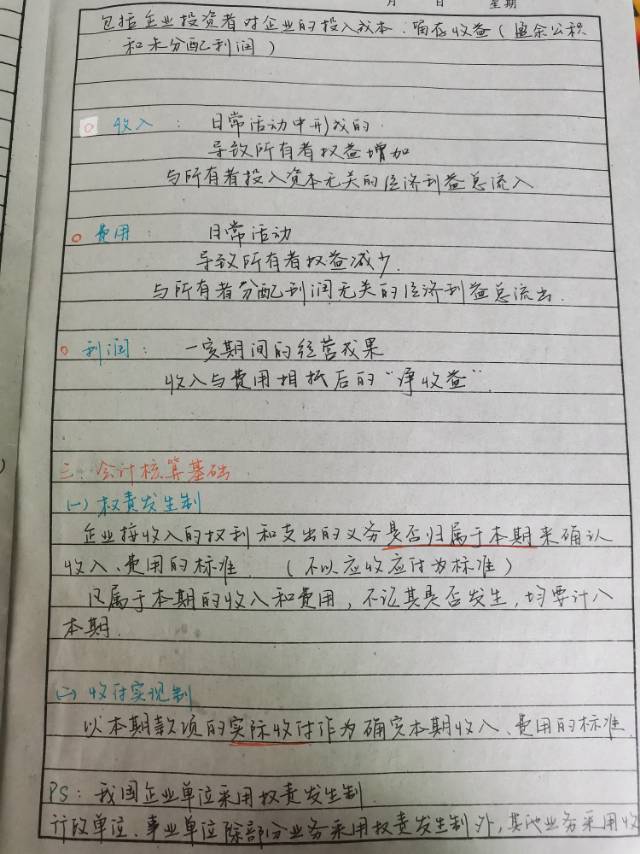 月 日 星期
包括企业投资者对企业的投入成本、留存收益（盈余公积
和未分配利润）
收入： 日常活动中形成的.
导致所有者权益增加
与所有者投入资本无关的经济利益总流入
费用： 日常活动
导致所有者权益减少.
与所有者分配利润无关的经济利益总流出.
利润： 一定期间的经营成果
收入与费用相抵后的“净收益”.
三. 会计核算基础.
(一) 权责发生制
企业按收入的权利和支出的义务是否归属于本期来确认
收入、费用的标准. （不以应收应付为标准）
凡属于本期的收入和费用，不论其是否发生，均要计入
本期.
(二) 收付实现制
以本期款项的实际收付作为确定本期收入、费用的标准.
PS：我国企业单位采用权责发生制.
行政单位、事业单位除部分业务采用权责发生制外，其他业务采用收